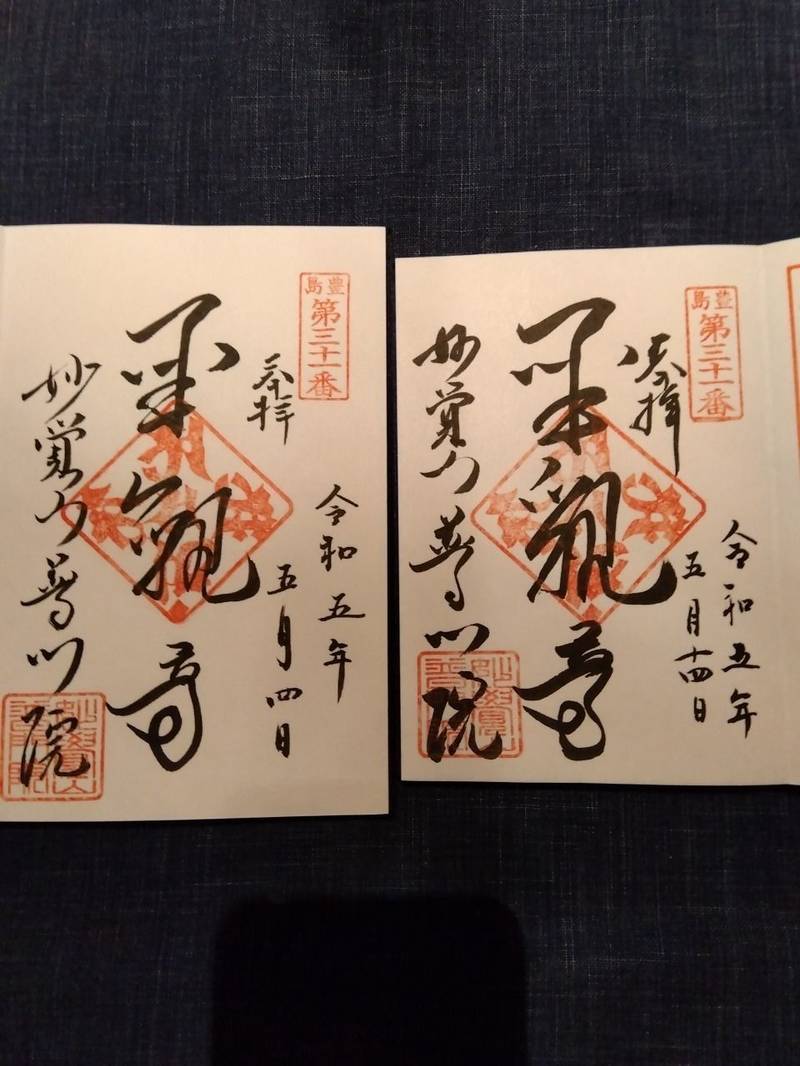 豊島
第三十一番
奉拝
令和五年
五月四日
観
妙覚山普門院
豊島
第三十一番
奉拝
令和五年
五月十四日
観
妙覚山普門院